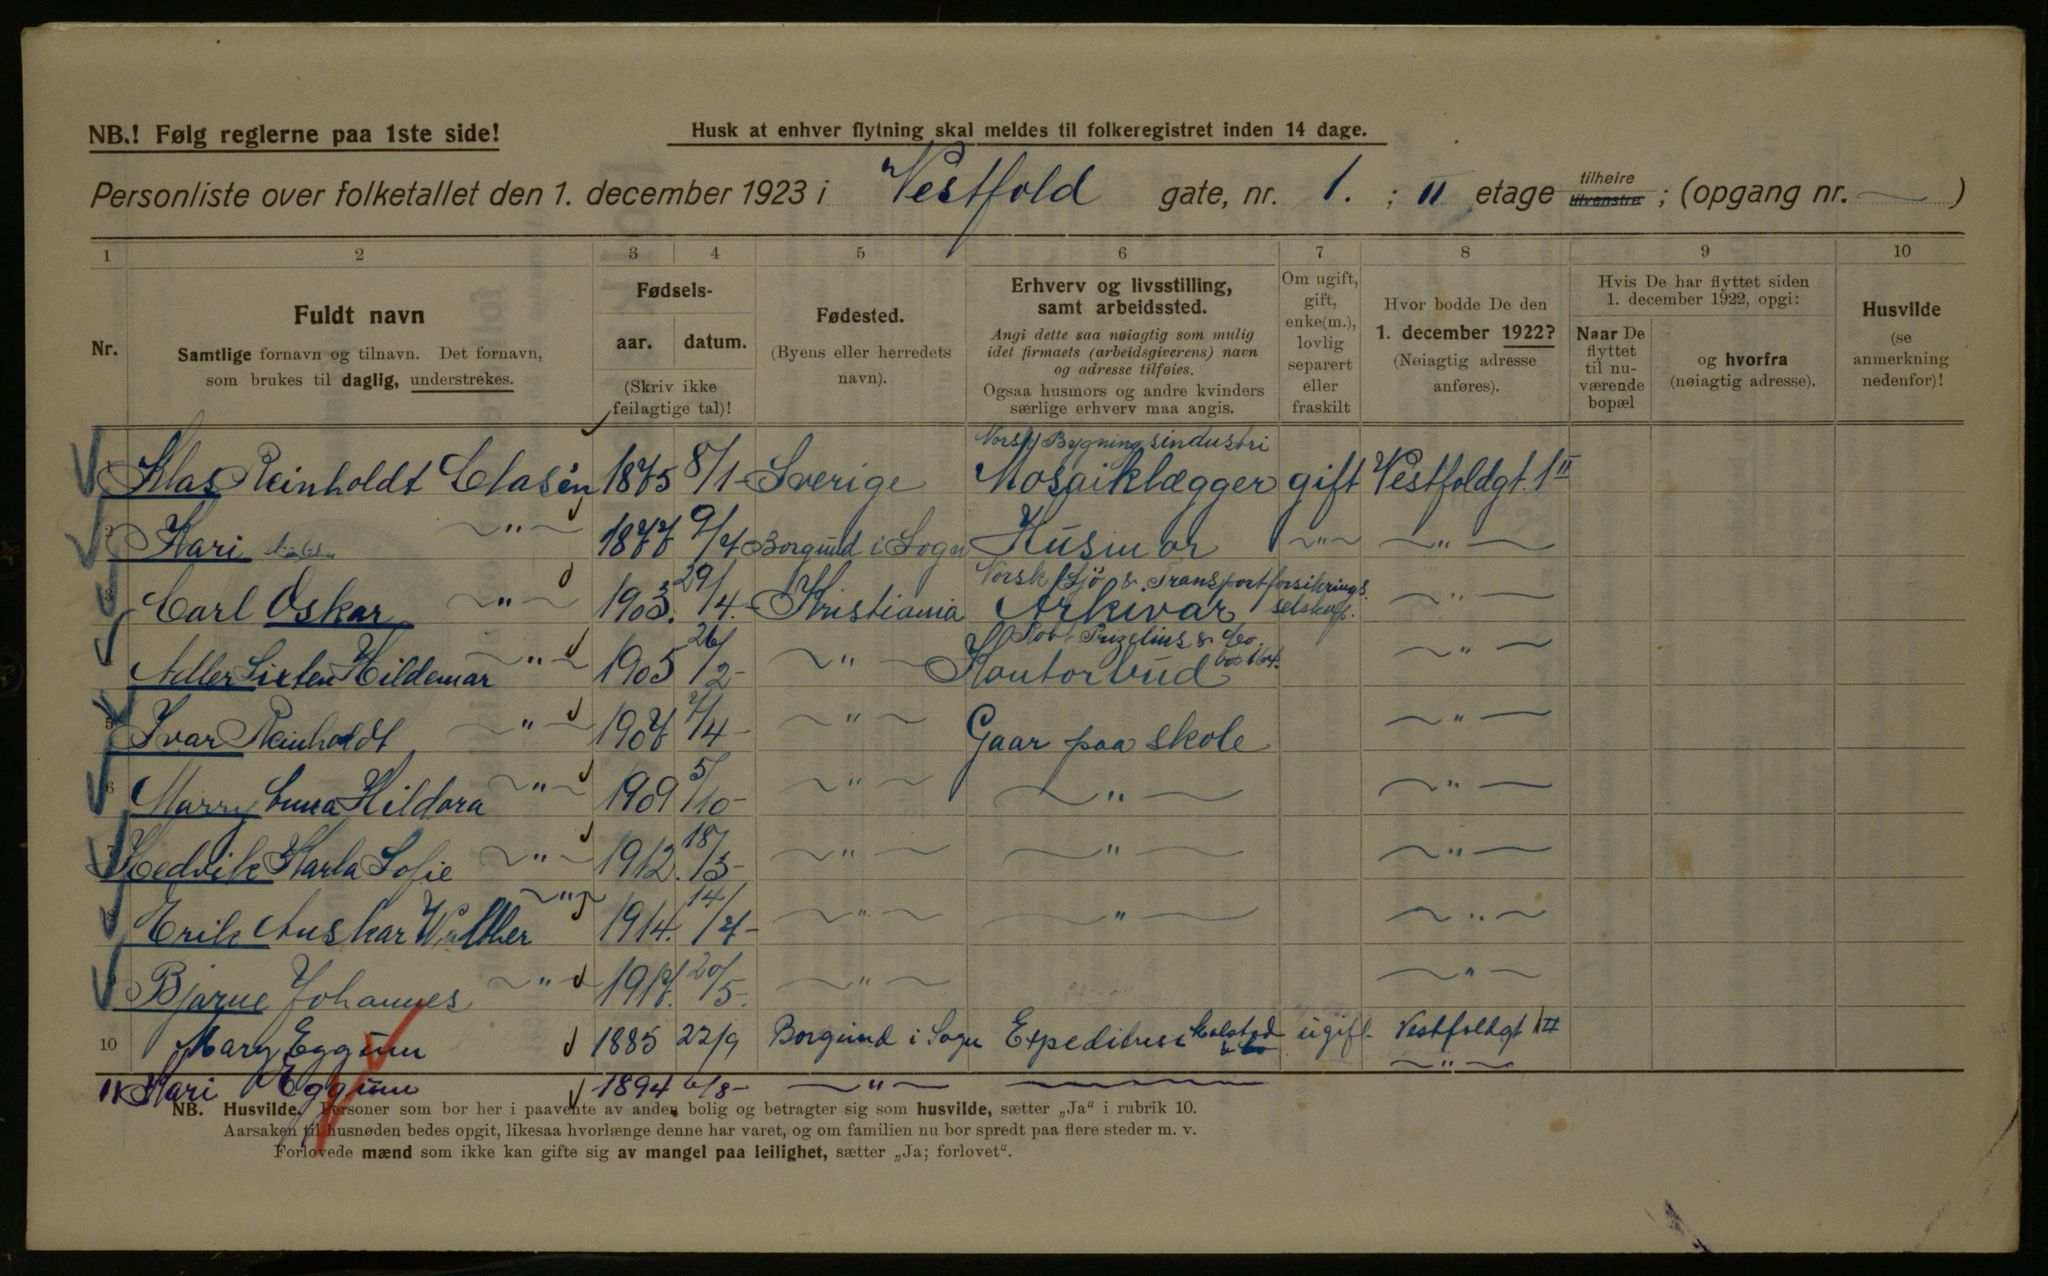 NB.! Følg reglerne paa 1ste side!
Husk at enhver flytning skal meldes til folkeregistret inden 14 dage.
Personliste over folketallet den 1. december 1923 i Vestfold gate, nr. 1. ; II etage tilhøire tilvenstre ; (opgang nr. — )
1 2 3 4 5 6 7 8 9 10
Nr.
Fuldt navn
Samtlige fornavn og tilnavn. Det fornavn,
som brukes til daglig, understrekes.
Fødsels-
aar. datum.
(Skriv ikke
feilagtige tal)!
Fødested.
(Byens eller herredets
navn).
Erhverv og livsstilling,
samt arbeidssted.
Angi dette saa nøiagtig som mulig
idet firmaets (arbeidsgiverens) navn
og adresse tilføies.
Ogsaa husmors og andre kvinders
særlige erhverv maa angis.
Om ugift,
gift,
enke(m.),
lovlig
separert
eller
fraskilt
Hvor bodde De den
1. december 1922?
(Nøiagtig adresse
anføres).
Hvis De har flyttet siden
1. december 1922, opgi:
Naar De
flyttet
til nu-
værende
bopæl
og hvorfra
(nøiagtig adresse).
Husvilde
(se
anmerkning
nedenfor)!
Norsk Bygningsindustri
Klas Reinholdt Clasén 1875 8/1 - Sverige Mosaiklægger gift Vestfoldgt. 1 II
2 Kari — " — 1877 9/7 Borgund i Sogn Husmor — " — — " —
Norsk Sjö & Transportforsikrings.
3 Carl Oskar — " — 1903. 29/4. - Kristiania Arkivar selskap. — " —
4 Adler Sixten Hildemar — " — 1905 26/2 - — " — Kontorbud — " —
5 Ivar Reinholdt — " — 1907 7/4 - — " — Gaar paa skole — " —
6 Marry Hildora — " — 1909 5/10 - — " — — " — — " —
7 Hedvik Karla Sofie — " — 1912. 18/3 - — " — — " — — " —
8 Erik Anskar Walther — " — 1914. 14/7 - — " — — " — — " —
9 Bjarne Johannes — " — 1917. 20/5 - — " — — " —
10 Mary Eggum 1885 22/9 Borgund i Sogn ugift Vestfoldgt 1 II
— " —
11 Kari Eggum 1894 6/8 - — " — —
NB. Husvilde. Personer som bor her i paavente av anden bolig og betragter sig som husvilde, sætter „Ja“ i rubrik 10.
Aarsaken til husnøden bedes opgit, likesaa hvorlænge denne har varet, og om familien nu bor spredt paa flere steder m. v.
Forlovede mænd som ikke kan gifte sig av mangel paa leilighet, sætter „Ja; forlovet“.